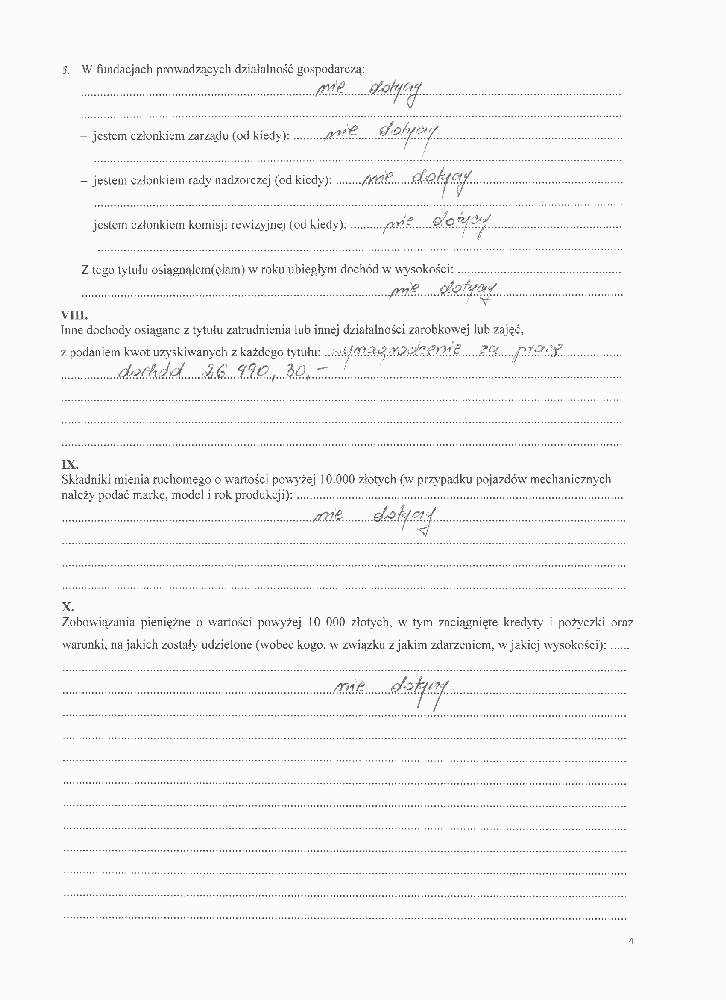 3. W fundacjach prowadzących działalność gospodarczą:
nie dotyczy
– jestem członkiem zarządu (od kiedy): nie dotyczy
– jestem członkiem rady nadzorczej (od kiedy): nie dotyczy
jestem członkiem komisji rewizyjnej (od kiedy): nie dotyczy
Z tego tytułu osiągnąłem(ęłam) w roku ubiegłym dochód w wysokości:
nie dotyczy
VIII.
Inne dochody osiągane z tytułu zatrudnienia lub innej działalności zarobkowej lub zajęć,
z podaniem kwot uzyskiwanych z każdego tytułu: wynagrodzenie za pracę
dochód 26 490,30,-
IX.
Składniki mienia ruchomego o wartości powyżej 10.000 złotych (w przypadku pojazdów mechanicznych
należy podać markę, model i rok produkcji):
nie dotyczy
X.
Zobowiązania pieniężne o wartości powyżej 10 000 złotych, w tym zaciągnięte kredyty i pożyczki oraz
warunki, na jakich zostały udzielone (wobec kogo, w związku z jakim zdarzeniem, w jakiej wysokości):
nie dotyczy
4